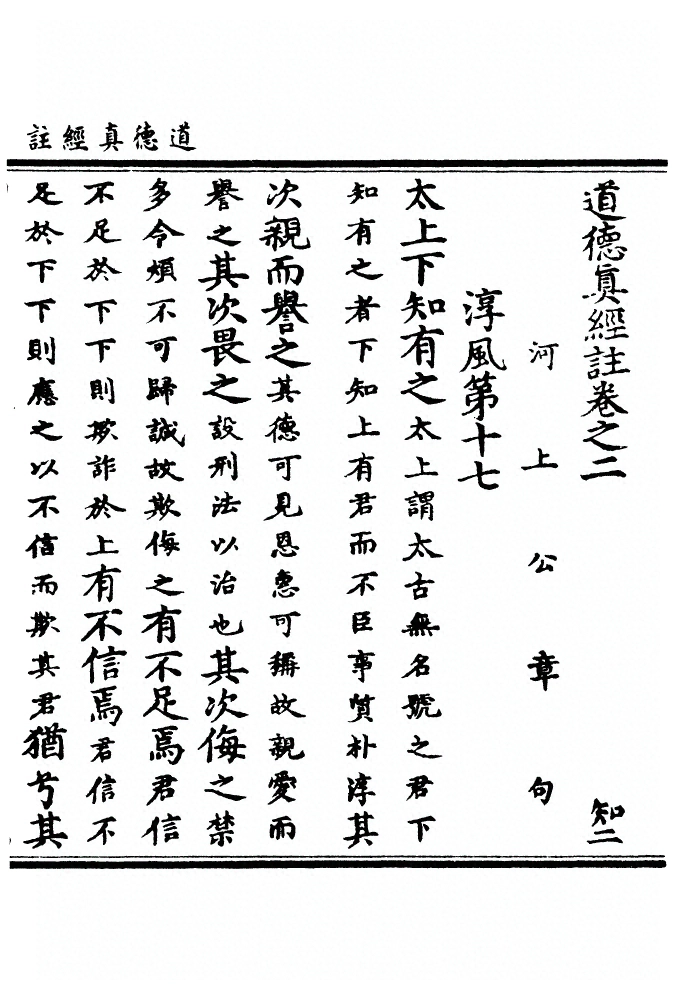 道德真經註
道德眞經註卷之二 知二
河上公章句
淳風第十七
太上下知有之太上謂太古無名號之君下
知有之者下知上有君而不臣事質朴淳其
次親而譽之其德可見恩惠可稱故親愛而
譽之其次畏之設刑法以治也其次侮之禁
多令煩不可歸誠故欺侮之有不足焉君信
不足於下下則欺詐於上有不信焉君信不
足於下下則應之以不信而欺其君猶兮其